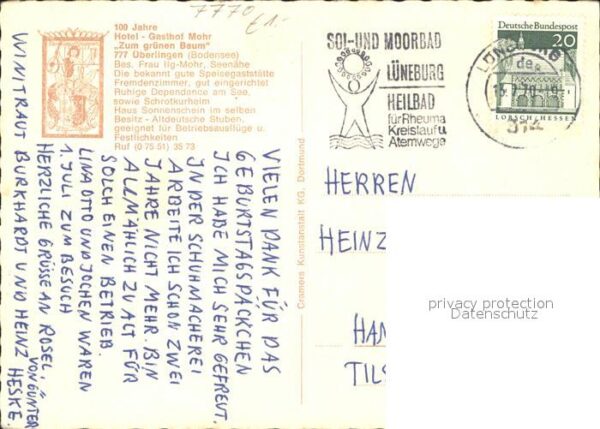 7770
61.-
100 Jahre
Hotel - Gasthof Mohr
„Zum grünen Baum"
777 Überlingen (Bodensee)
Bes. Frau Ilg-Mohr, Seenähe
Die bekannt gute Speisegaststätte
Fremdenzimmer, gut eingerichtet
Ruhige Dependence am See,
sowie Schrotkurheim
Haus Sonnenschein im selben
Besitz - Altdeutsche Stuben,
geeignet für Betriebsausflüge u.
Festlichkeiten
Ruf (0 75 51) 35 73
SOL-UND MOORBAD
LÜNEBURG
HEILBAD
für Rheuma
Kreislauf u.
Atemwege
Deutsche Bundespost
20
LORSCH/HESSEN
VIELEN DANK FÜR DAS
GEBURTSTAGSPÄCKCHEN
ICH HABE MICH SEHR GEFREUT.
IN DER SCHUHMACHEREI
ARBEITE ICH SCHON ZWEI
JAHRE NICHT MEHR. BIN
ALLMÄHLICH ZU ALT FÜR
SOLCH EINEN BETRIEB.
LINA OTTO UND JOCHEN WAREN
1. JULI ZUM BESUCH
HERZLICHE GRÜSSE AN ROSEL,
VON GÜNTER
WINITRAUT BURKHARDT UND HEINZ HESKE.
Cramers Kunstanstalt KG, Dortmund
HERREN
HEINZ
HAN
TILS
privacy protection
Datenschutz